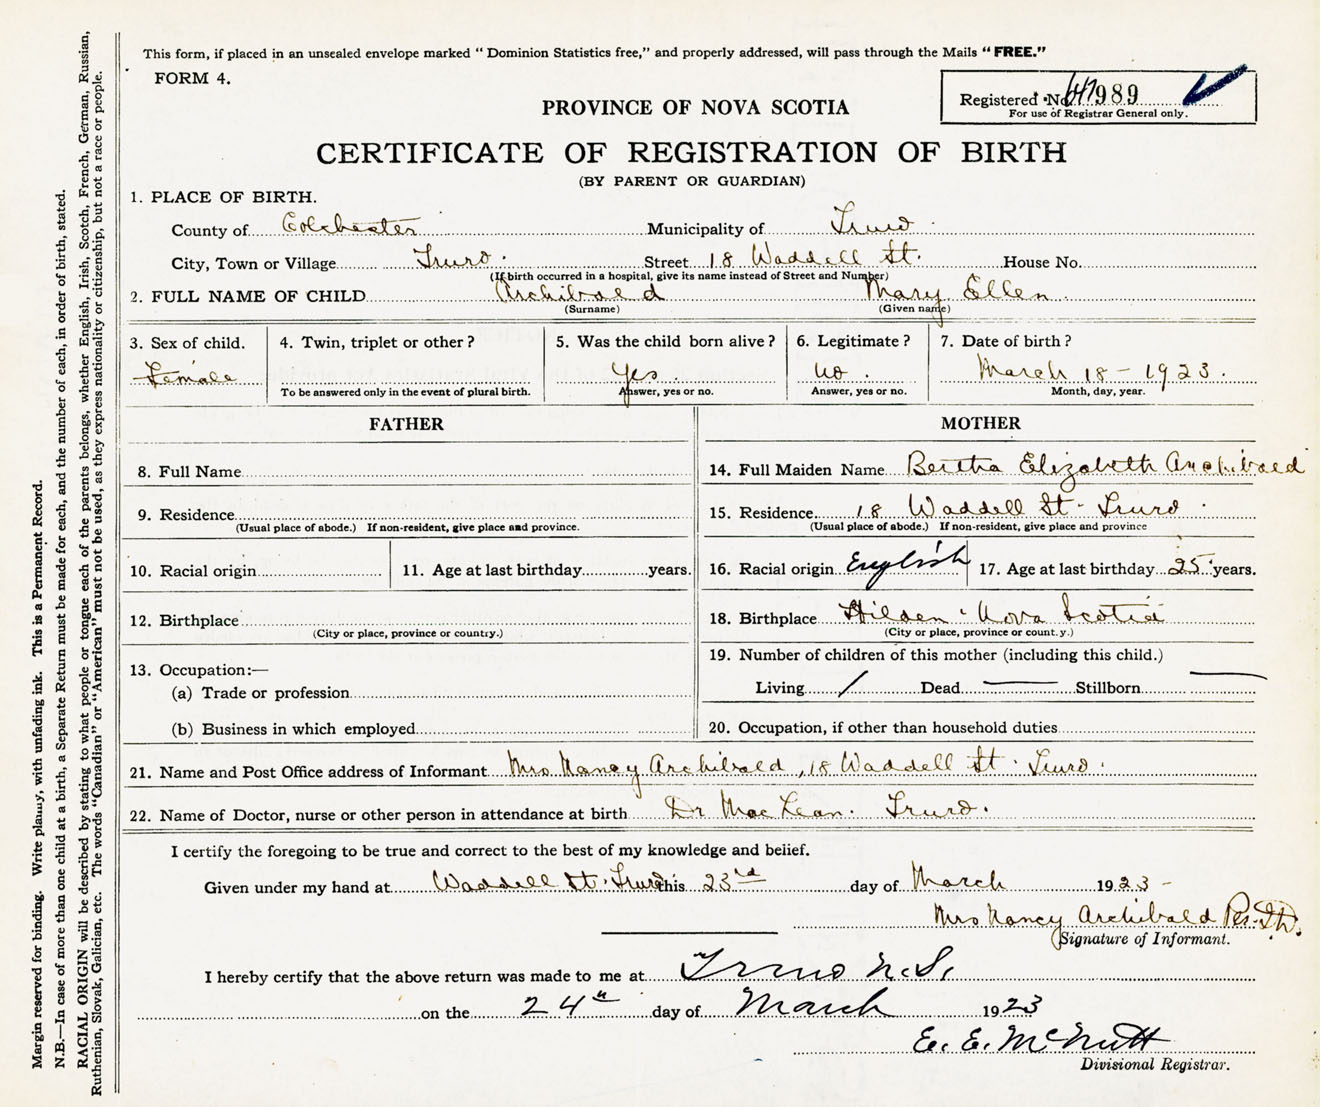 This form, if placed in an unsealed envelope marked “ Dominion Statistics free,” and properly addressed, will pass through the Mails “ FREE.”
FORM 4.
Registered No. 989
For use of Registrar General only.
PROVINCE OF NOVA SCOTIA
CERTIFICATE OF REGISTRATION OF BIRTH
(BY PARENT OR GUARDIAN)
1. PLACE OF BIRTH.
County of Colchester Municipality of Truro
City, Town or Village Truro. Street 18 Waddell St. House No.
(If birth occurred in a hospital, give its name instead of Street and Number)
2. FULL NAME OF CHILD Archibald Mary Ellen
(Surname) (Given name)
3. Sex of child. 4. Twin, triplet or other ? 5. Was the child born alive ? 6. Legitimate ? 7. Date of birth ?
Female Yes. no. March 18 - 1923.
To be answered only in the event of plural birth. Answer, yes or no. Answer, yes or no. Month, day, year.
FATHER
8. Full Name
9. Residence
(Usual place of abode.) If non-resident, give place and province.
10. Racial origin 11. Age at last birthday years.
12. Birthplace
(City or place, province or country.)
13. Occupation:—
(a) Trade or profession
(b) Business in which employed
MOTHER
14. Full Maiden Name Bertha Elizabeth Archibald
15. Residence 18 Waddell St - Truro
(Usual place of abode.) If non-resident, give place and province
16. Racial origin English 17. Age at last birthday 25 years.
18. Birthplace Hilden Nova Scotia
(City or place, province or count.y.)
19. Number of children of this mother (including this child.)
Living / Dead — Stillborn —
20. Occupation, if other than household duties
21. Name and Post Office address of Informant Mrs Nancy Archibald, 18 Waddell St. Truro.
22. Name of Doctor, nurse or other person in attendance at birth Dr MacLean. Truro.
I certify the foregoing to be true and correct to the best of my knowledge and belief.
Given under my hand at Waddell St. Truro this 23rd day of March 1923 -
Mrs Nancy Archibald
(Signature of Informant.
I hereby certify that the above return was made to me at Truro N.S.
on the 24th day of March 1923
E. E. McNutt
Divisional Registrar.
Margin reserved for binding. Write plainly, with unfading ink. This is a Permanent Record.
N.B.—In case of more than one child at a birth, a Separate Return must be made for each, and the number of each, in order of birth, stated.
RACIAL ORIGIN will be described by stating to what people or tongue each of the parents belongs, whether English, Irish, Scotch, French, German, Russian,
Ruthenian, Slovak, Galician, etc. The words “Canadian” or “American” must not be used, as they express nationality or citizenship, but not a race or people.